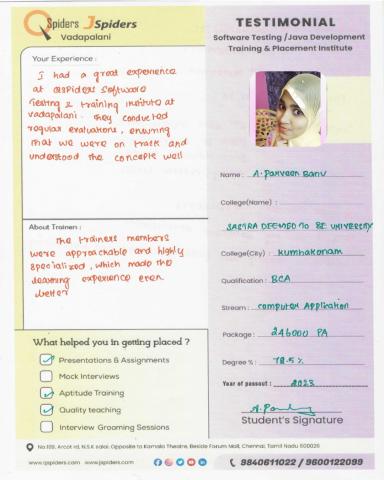 QSpiders JSpiders
Vadapalani
TESTIMONIAL
Software Testing /Java Development
Training & Placement Institute
Your Experience :
I had a great experience
at QSpiders Software
Testing & training institute at
vadapalani. They conducted
regular evaluations, ensuring
that we were on track and
understood the concepts well
About Trainers :
The trainers members
were approachable and highly
specialized, which made the
learning experience even
better
Name : A. Parveen Banu
College(Name) :
SASTRA DEEMED TO BE UNIVERSITY
College(City) : Kumbakonam
Qualification : BCA
Stream : Computer Application
Package : 246000 PA
Degree % : 78.5 %
Year of passout : 2023
Student's Signature
What helped you in getting placed ?
Presentations & Assignments
Mock Interviews
Aptitude Training
Quality teaching
Interview Grooming Sessions
No.109, Arcot rd, N.S.K salai, Opposite to Kamala Theatre, Beside Forum Mall, Chennai, Tamil Nadu 600026
www.qspiders.com www.jspiders.com
9840611022 / 9600122099